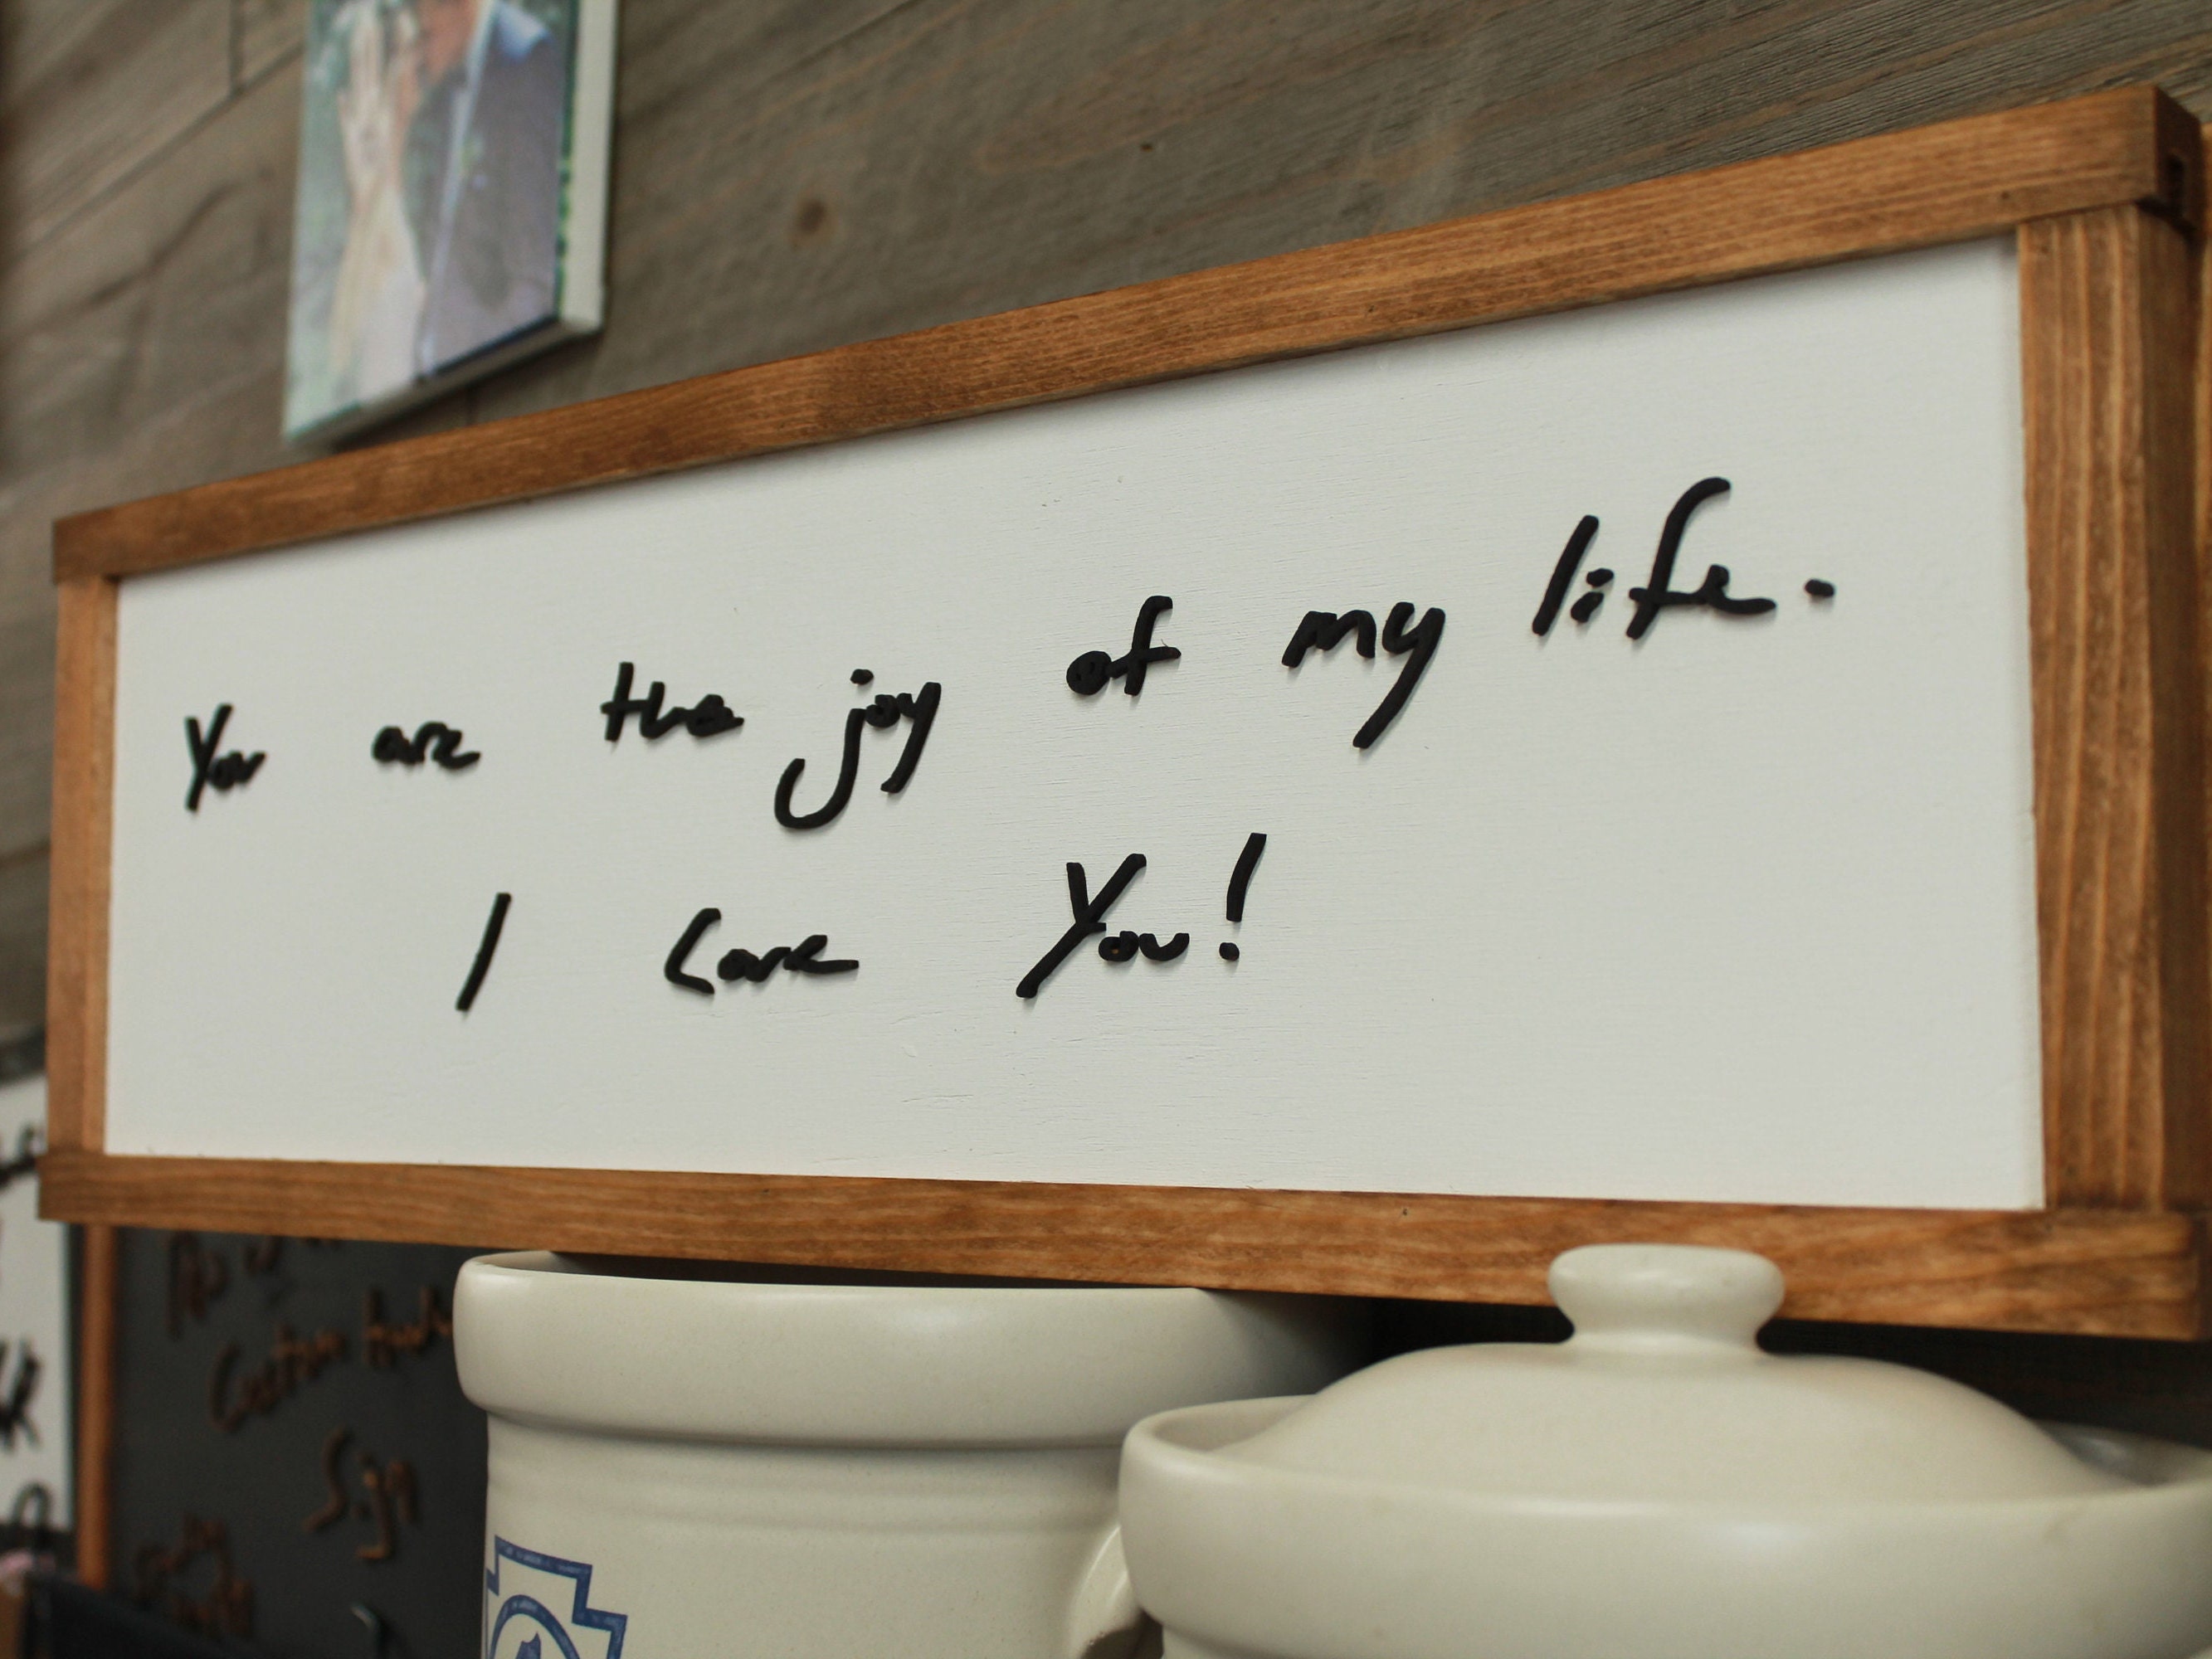 You are the joy of my life.
I Love You!
Custom
Sign